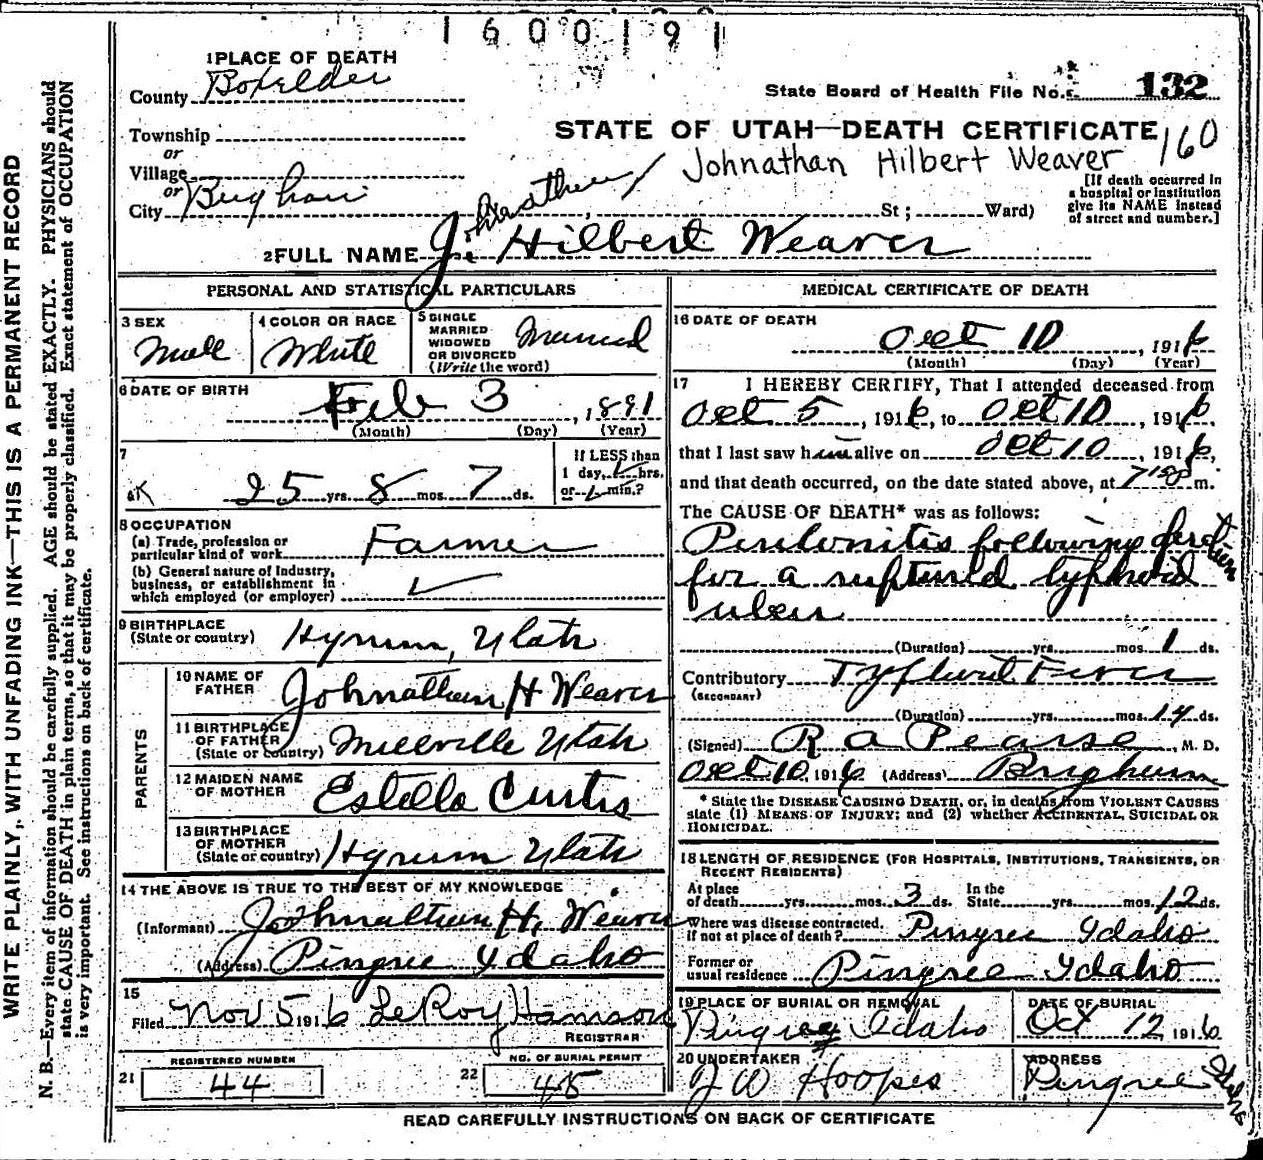 1600191
1 PLACE OF DEATH
County Boxelder
State Board of Health File No. 132
Township
or
Village
or
City Brigham
STATE OF UTAH—DEATH CERTIFICATE 160
Johnathan Hilbert Weaver
St; Ward)
[If death occurred in
a hospital or institution
give its NAME instead
of street and number.]
Johnathan
2 FULL NAME J. Hilbert Weaver
PERSONAL AND STATISTICAL PARTICULARS
3 SEX
Male
4 COLOR OR RACE
White
5 SINGLE
MARRIED
WIDOWED
OR DIVORCED
(Write the word)
Married
6 DATE OF BIRTH
Feb 3, 1891
(Month) (Day) (Year)
7
25 yrs. 8 mos. 7 ds.
If LESS than
1 day, hrs.
or min.?
8 OCCUPATION
(a) Trade, profession or
particular kind of work Farmer
(b) General nature of Industry,
business, or establishment in
which employed (or employer) ✓
9 BIRTHPLACE
(State or country) Hyrum, Utah
PARENTS
10 NAME OF
FATHER Johnathan H Weaver
11 BIRTHPLACE
OF FATHER
(State or country) Millville Utah
12 MAIDEN NAME
OF MOTHER Estella Curtis
13 BIRTHPLACE
OF MOTHER
(State or country) Hyrum Utah
14 THE ABOVE IS TRUE TO THE BEST OF MY KNOWLEDGE
(Informant) Johnathan H. Weaver
(Address) Pingree Idaho
15
Filed Nov 5 1916 LeRoy Hamson
REGISTRAR
REGISTERED NUMBER
21 44
NO. OF BURIAL PERMIT
22 45
MEDICAL CERTIFICATE OF DEATH
16 DATE OF DEATH
Oct 10, 1916
(Month) (Day) (Year)
17 I HEREBY CERTIFY, That I attended deceased from
Oct 5, 1916, to Oct 10, 1916,
that I last saw him alive on Oct 10, 1916,
and that death occurred, on the date stated above, at m.
The CAUSE OF DEATH* was as follows:
Peritonitis following
for a ruptured typhoid
ulcer
(Duration) yrs. mos. 1 ds.
Contributory Typhoid Fever
(SECONDARY)
(Duration) yrs. mos. 14 ds.
(Signed) R A Pearse, M. D.
Oct 10, 1916 (Address) Brigham
* State the DISEASE CAUSING DEATH, or, in deaths from VIOLENT CAUSES
state (1) MEANS OF INJURY; and (2) whether ACCIDENTAL, SUICIDAL OR
HOMICIDAL.
18 LENGTH OF RESIDENCE (FOR HOSPITALS, INSTITUTIONS, TRANSIENTS, OR
RECENT RESIDENTS)
At place
of death yrs. mos. 3 ds.
In the
State yrs. mos. 12 ds.
Where was disease contracted,
if not at place of death? Pingree Idaho
Former or
usual residence Pingree Idaho
19 PLACE OF BURIAL OR REMOVAL
Pingree Idaho
DATE OF BURIAL
Oct 12 1916
20 UNDERTAKER
J W Hoopes
ADDRESS
Pingree Idaho
READ CAREFULLY INSTRUCTIONS ON BACK OF CERTIFICATE
WRITE PLAINLY, WITH UNFADING INK—THIS IS A PERMANENT RECORD
N. B.—Every item of information should be carefully supplied. AGE should be stated EXACTLY. PHYSICIANS should
state CAUSE OF DEATH in plain terms, so that it may be properly classified. Exact statement of OCCUPATION
is very important. See instructions on back of certificate.